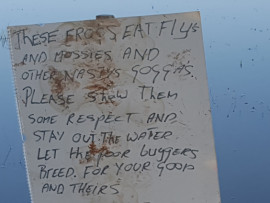 THESE FROGS EAT FLYS
AND MOSSIES AND
OTHER NASTY GOGGAS.
PLEASE SHOW THEM
SOME RESPECT AND
STAY OUT THE WATER
LET the POOR BUGGERS
BREED. FOR YOUR GOOD
AND THEIRS